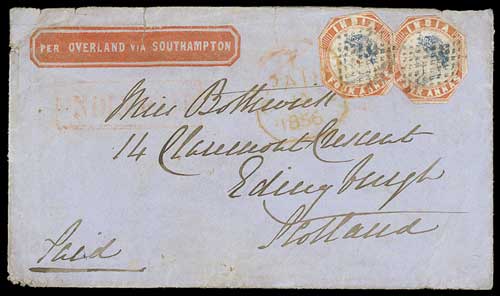 PER OVERLAND VIA SOUTHAMPTON
INDIA
FOUR ANNAS
INDIA
FOUR ANNAS
INDIA
PAID
1856
Miss Borthwick
14 Claremont Crescent
Edinburgh
Scotland
Paid